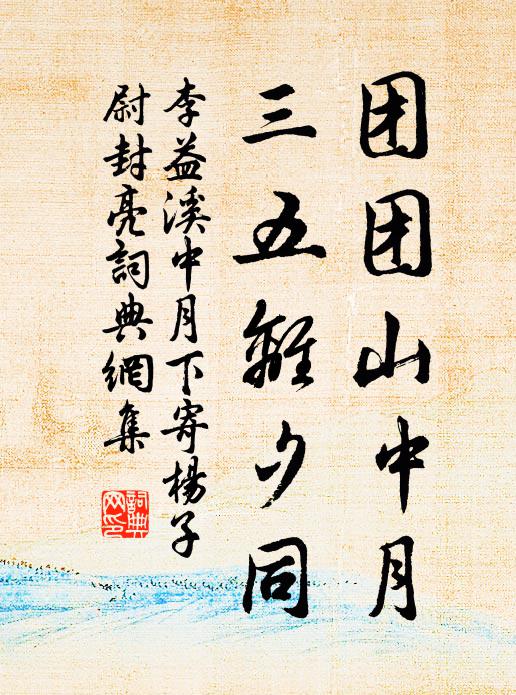 团团山中月
三五離夕同
李益溪中月下寄楊子
尉封亮詞典網集
詞典
网印